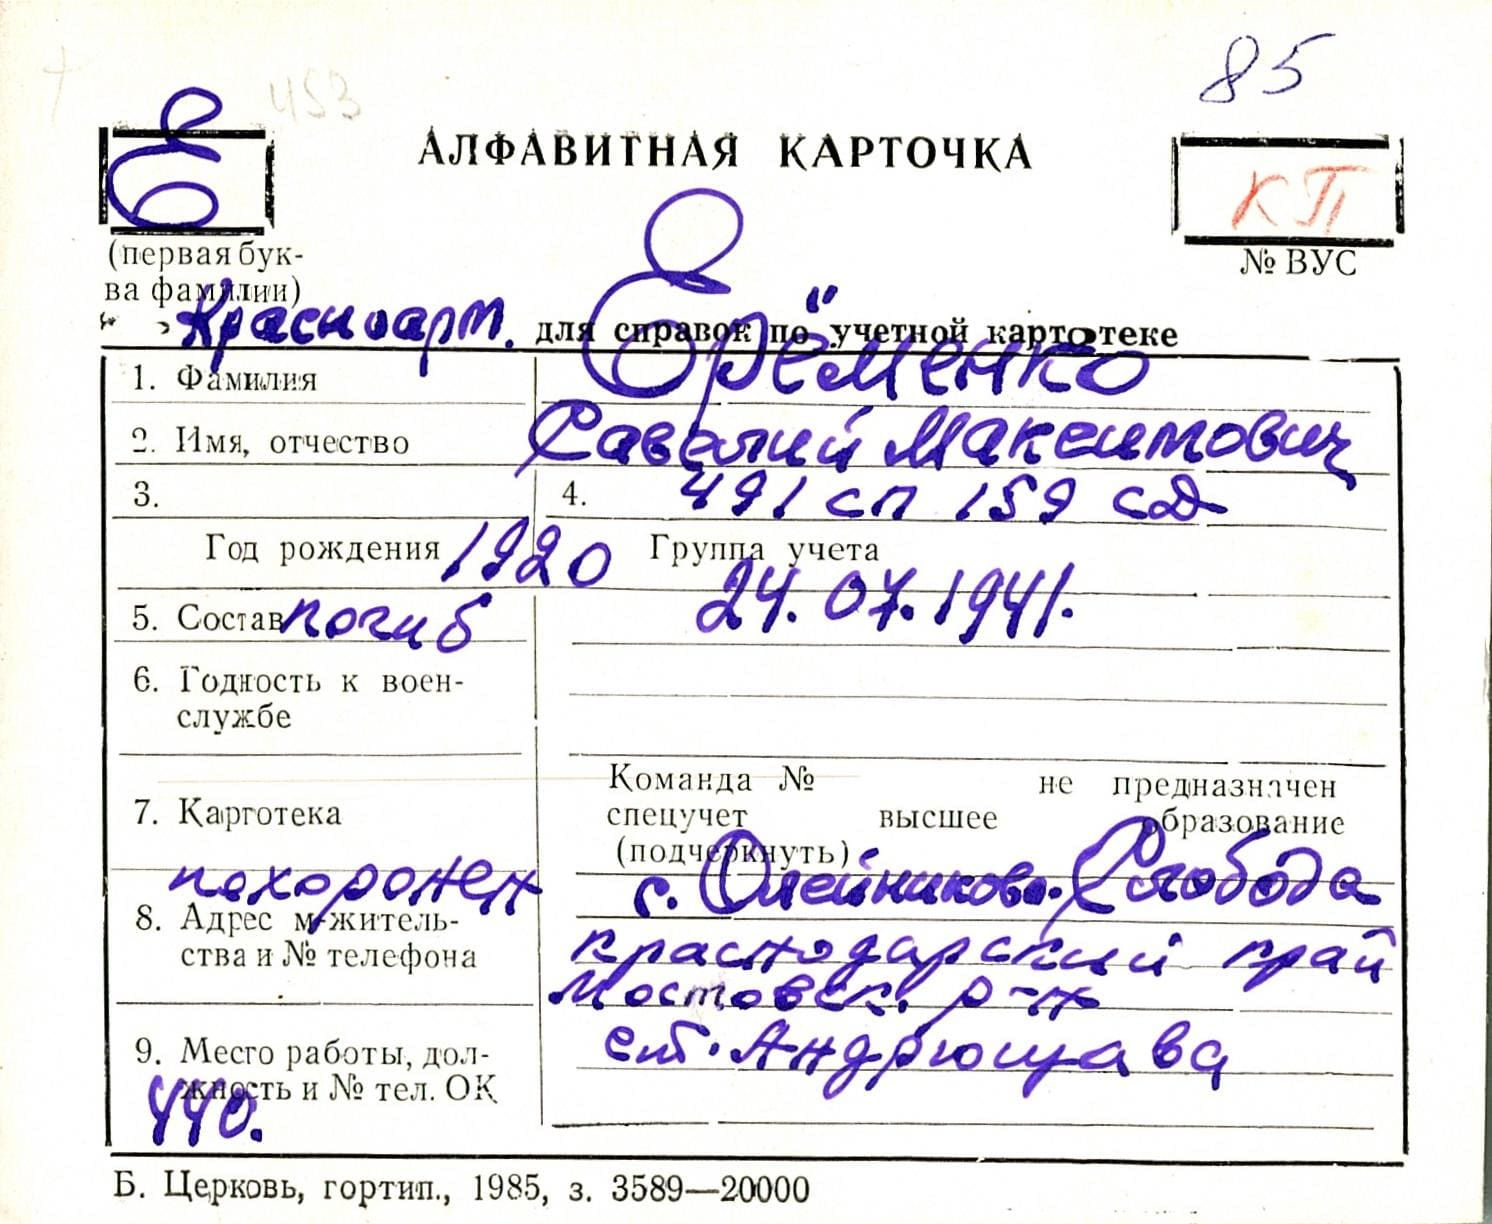 453
85
Е
АЛФАВИТНАЯ КАРТОЧКА
КП
(первая бук-
ва фамилии)
№ ВУС
Красноарм. для справок по учетной картотеке
1. Фамилия Ерёменко
2. Имя, отчество Савелий Максимович
3. 4. 491 сп 159 сд
Год рождения 1920 Группа учета
24.07.1941.
5. Состав погиб
6. Годность к воен-
службе
Команда № не предназначен
7. Картотека спецучет высшее образование
(подчеркнуть)
похоронен с. Олейникова. Слобода
8. Адрес м-житель-
ства и № телефона
краснодарский край
Мостовск. р-н
9. Место работы, дол-
жность и № тел. ОК
ст. Андрющава
440.
Б. Церковь, гортип., 1985, з. 3589—20000